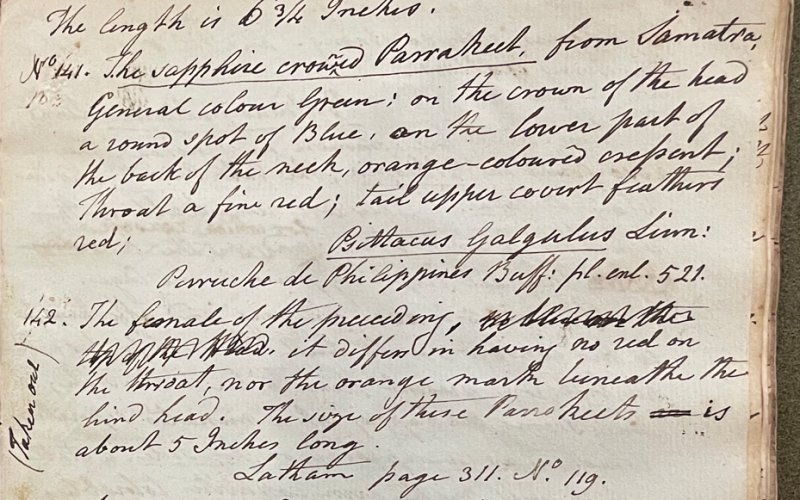 The length is 6 3/4 Inches.
No 141. The sapphire crown̄d Parrakeet, from Samatra,
General colour Green; on the crown of the head
a round spot of Blue, on the lower part of
the back of the neck, orange-coloured crescent;
Throat a fine red; tail upper covert feathers
red; Psittacus Galgulus Linn:
Perruche de Philippines Buff: pl. enl. 521.
142. The female of the preceding,
it differs in having no red on
the throat, nor the orange mark beneathe the
hind head. The size of these Parrakeets is
about 5 Inches long.
(Taken out)
Latham page 311. No. 119.